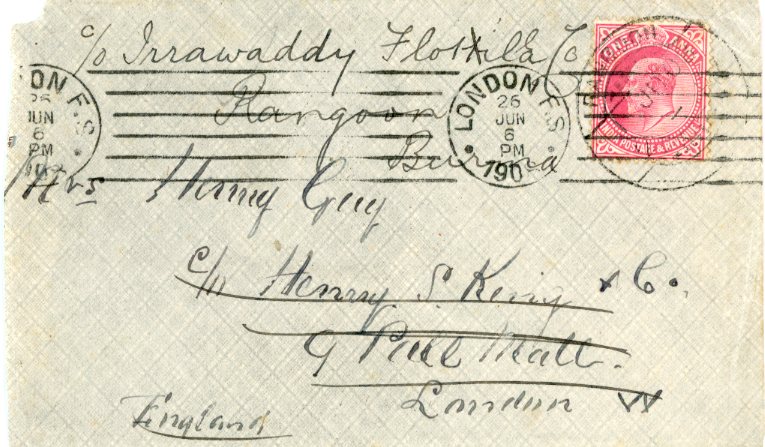 c/o Irrawaddy Flotilla Co
Rangoon
Burma
Mrs Henry Guy
c/o Henry S. King & Co.
9 Pall Mall.
London W
England
LONDON F.S.
26
JUN
6
PM
190
ON F.S.
26
JUN
6
PM
ONE ANNA
INDIA POSTAGE & REVENUE